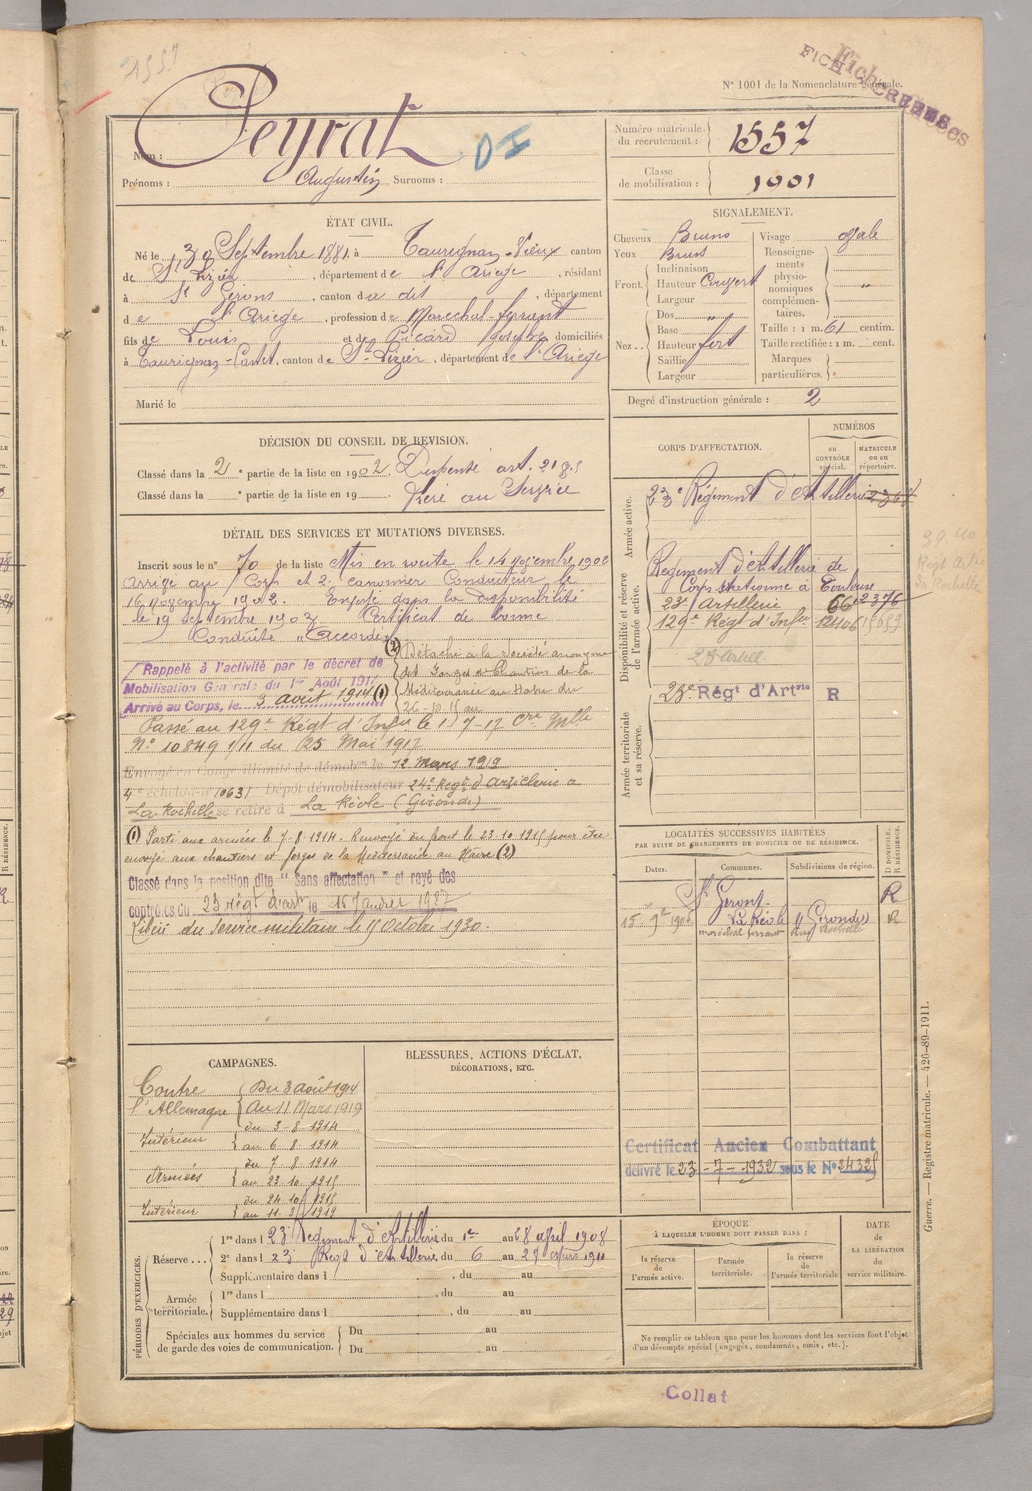 1557
FICHES CRÉÉES
N° 1001 de la Nomenclature générale.
Nom : Peyrat
Prénoms : Augustin Surnoms :
Numéro matricule du recrutement : 1557
Classe de mobilisation : 1901
ÉTAT CIVIL.
Né le 30 Septembre 1881, à Taurignan-Vieux canton
de St Lizier, département de l'Ariège, résidant
à St Girons, canton du dit, département
de l'Ariège, profession de Maréchal-ferrant
fils de Louis et de Picard domiciliés
à Taurignan-Castet, canton de St Lizier, département de l'Ariège
Marié le
SIGNALEMENT.
Cheveux Bruns
Yeux Bruns
Front, Inclinaison
Hauteur Couvert
Largeur
Nez .. Dos "
Base
Hauteur fort
Saillie
Largeur
Visage ovale
Renseignements physionomiques complémentaires. "
Taille : 1 m. 61 centim.
Taille rectifiée : 1 m. cent.
Marques particulières.
Degré d'instruction générale : 2
DÉCISION DU CONSEIL DE REVISION.
Classé dans la 2e partie de la liste en 1902. Dispensé art. 21 §
Classé dans la e partie de la liste en 19 . frère au Service
DÉTAIL DES SERVICES ET MUTATIONS DIVERSES.
Inscrit sous le n° 70 de la liste Mis en route le 14 novembre 1902
arrivé au Corps et 2e canonnier Conducteur le
16 novembre 1902. Envoyé dans la disponibilité
le 19 septembre 1903 Certificat de bonne
Conduite "Accordé"
Rappelé à l'activité par le décret de
Mobilisation Générale du 1er Août 1914
Arrivé au Corps, le 3 août 1914 (1)
(2) Détaché à la Société anonyme
des Forges et Chantiers de la
Méditerranée au Havre du
26-10-15 au
Passé au 129e Régt d'Infie le 1-7-17 Cre Mlle
N° 10849 1/11 du 25 Mai 1917
Envoyé en Congé illimité de démobon le 12 Mars 1919
4e échelon n° 10631 Dépôt démobilisateur 24e Régt d'Artillerie à
La Rochelle se retire à La Réole (Gironde)
(1) Parti aux armées le 7-8-1914. Renvoyé du front le 23-10-1915 pour être
envoyé aux chantiers et forges de la Méditerranée au Havre (2)
Classé dans la position dite "Sans affectation" et rayé des
contrôles du 23 régt d'artie le 15 Janvier 1927
Libéré du Service militaire le 1 Octobre 1930.
CORPS D'AFFECTATION.
NUMÉROS
AU CONTRÔLE spécial.
MATRICULE OU AU répertoire.
Armée active.
23e Régiment d'Artillerie
Disponibilité et réserve de l'armée active.
Régiment d'Artillerie de
Corps stationné à Toulouse
23e Artillerie 661 2376
129e Régt d'Infie 12406
23 Artill.
Armée territoriale et sa réserve.
23e Régt d'Artrie R
LOCALITÉS SUCCESSIVES HABITÉES
PAR SUITE DE CHANGEMENTS DE DOMICILE OU DE RÉSIDENCE.
Dates. Communes. Subdivisions de région. D DOMICILE. R RÉSIDENCE.
St Girons R
La Réole Gironde R
maréchal ferrant
CAMPAGNES.
Contre l'Allemagne Du 3 août 1914
Au 11 Mars 1919
Intérieur du 3-8-1914
au 6 8 1914
Armées du 7 8 1914
au 23 10 1915
Intérieur du 24 10 1915
au 11 3 1919
BLESSURES, ACTIONS D'ÉCLAT,
DÉCORATIONS, ETC.
Certificat Ancien Combattant
délivré le 23-7-1932 sous le N° 24325
PÉRIODES D'EXERCICES.
Réserve ... 1re dans l 23e Régiment d'Artillerie, du 1er au 28 avril 1908
2e dans l 23 Régt d'Artillerie, du 6 au 28 Mars 1911
Supplémentaire dans l , du au
Armée territoriale. 1re dans l , du au
Supplémentaire dans l , du au
Spéciales aux hommes du service de garde des voies de communication. Du au
Du au
ÉPOQUE
À LAQUELLE L'HOMME DOIT PASSER DANS :
la réserve de l'armée active.
l'armée territoriale.
la réserve de l'armée territoriale
DATE de LA LIBÉRATION du service militaire.
Ne remplir ce tableau que pour les hommes dont les services font l'objet
d'un décompte spécial (engagés, condamnés, omis, etc.).
Guerre. — Registre matricule. — 426-89-1911.
Collat